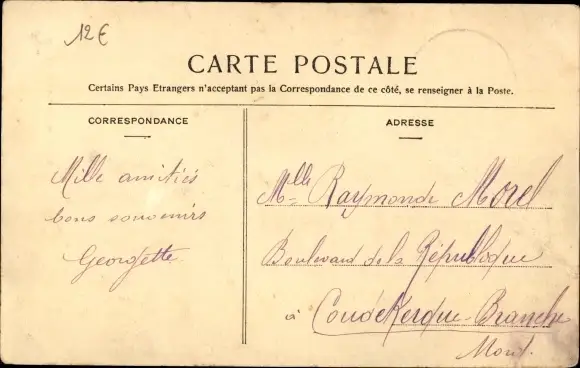 12€
CARTE POSTALE
Certains Pays Etrangers n'acceptant pas la Correspondance de ce côté, se renseigner à la Poste.
CORRESPONDANCE
Mille amitiés
bons souvenirs
Georgette
ADRESSE
Mlle Raymonde Morel
Boulevard de la République
à Coudekerque-Branche